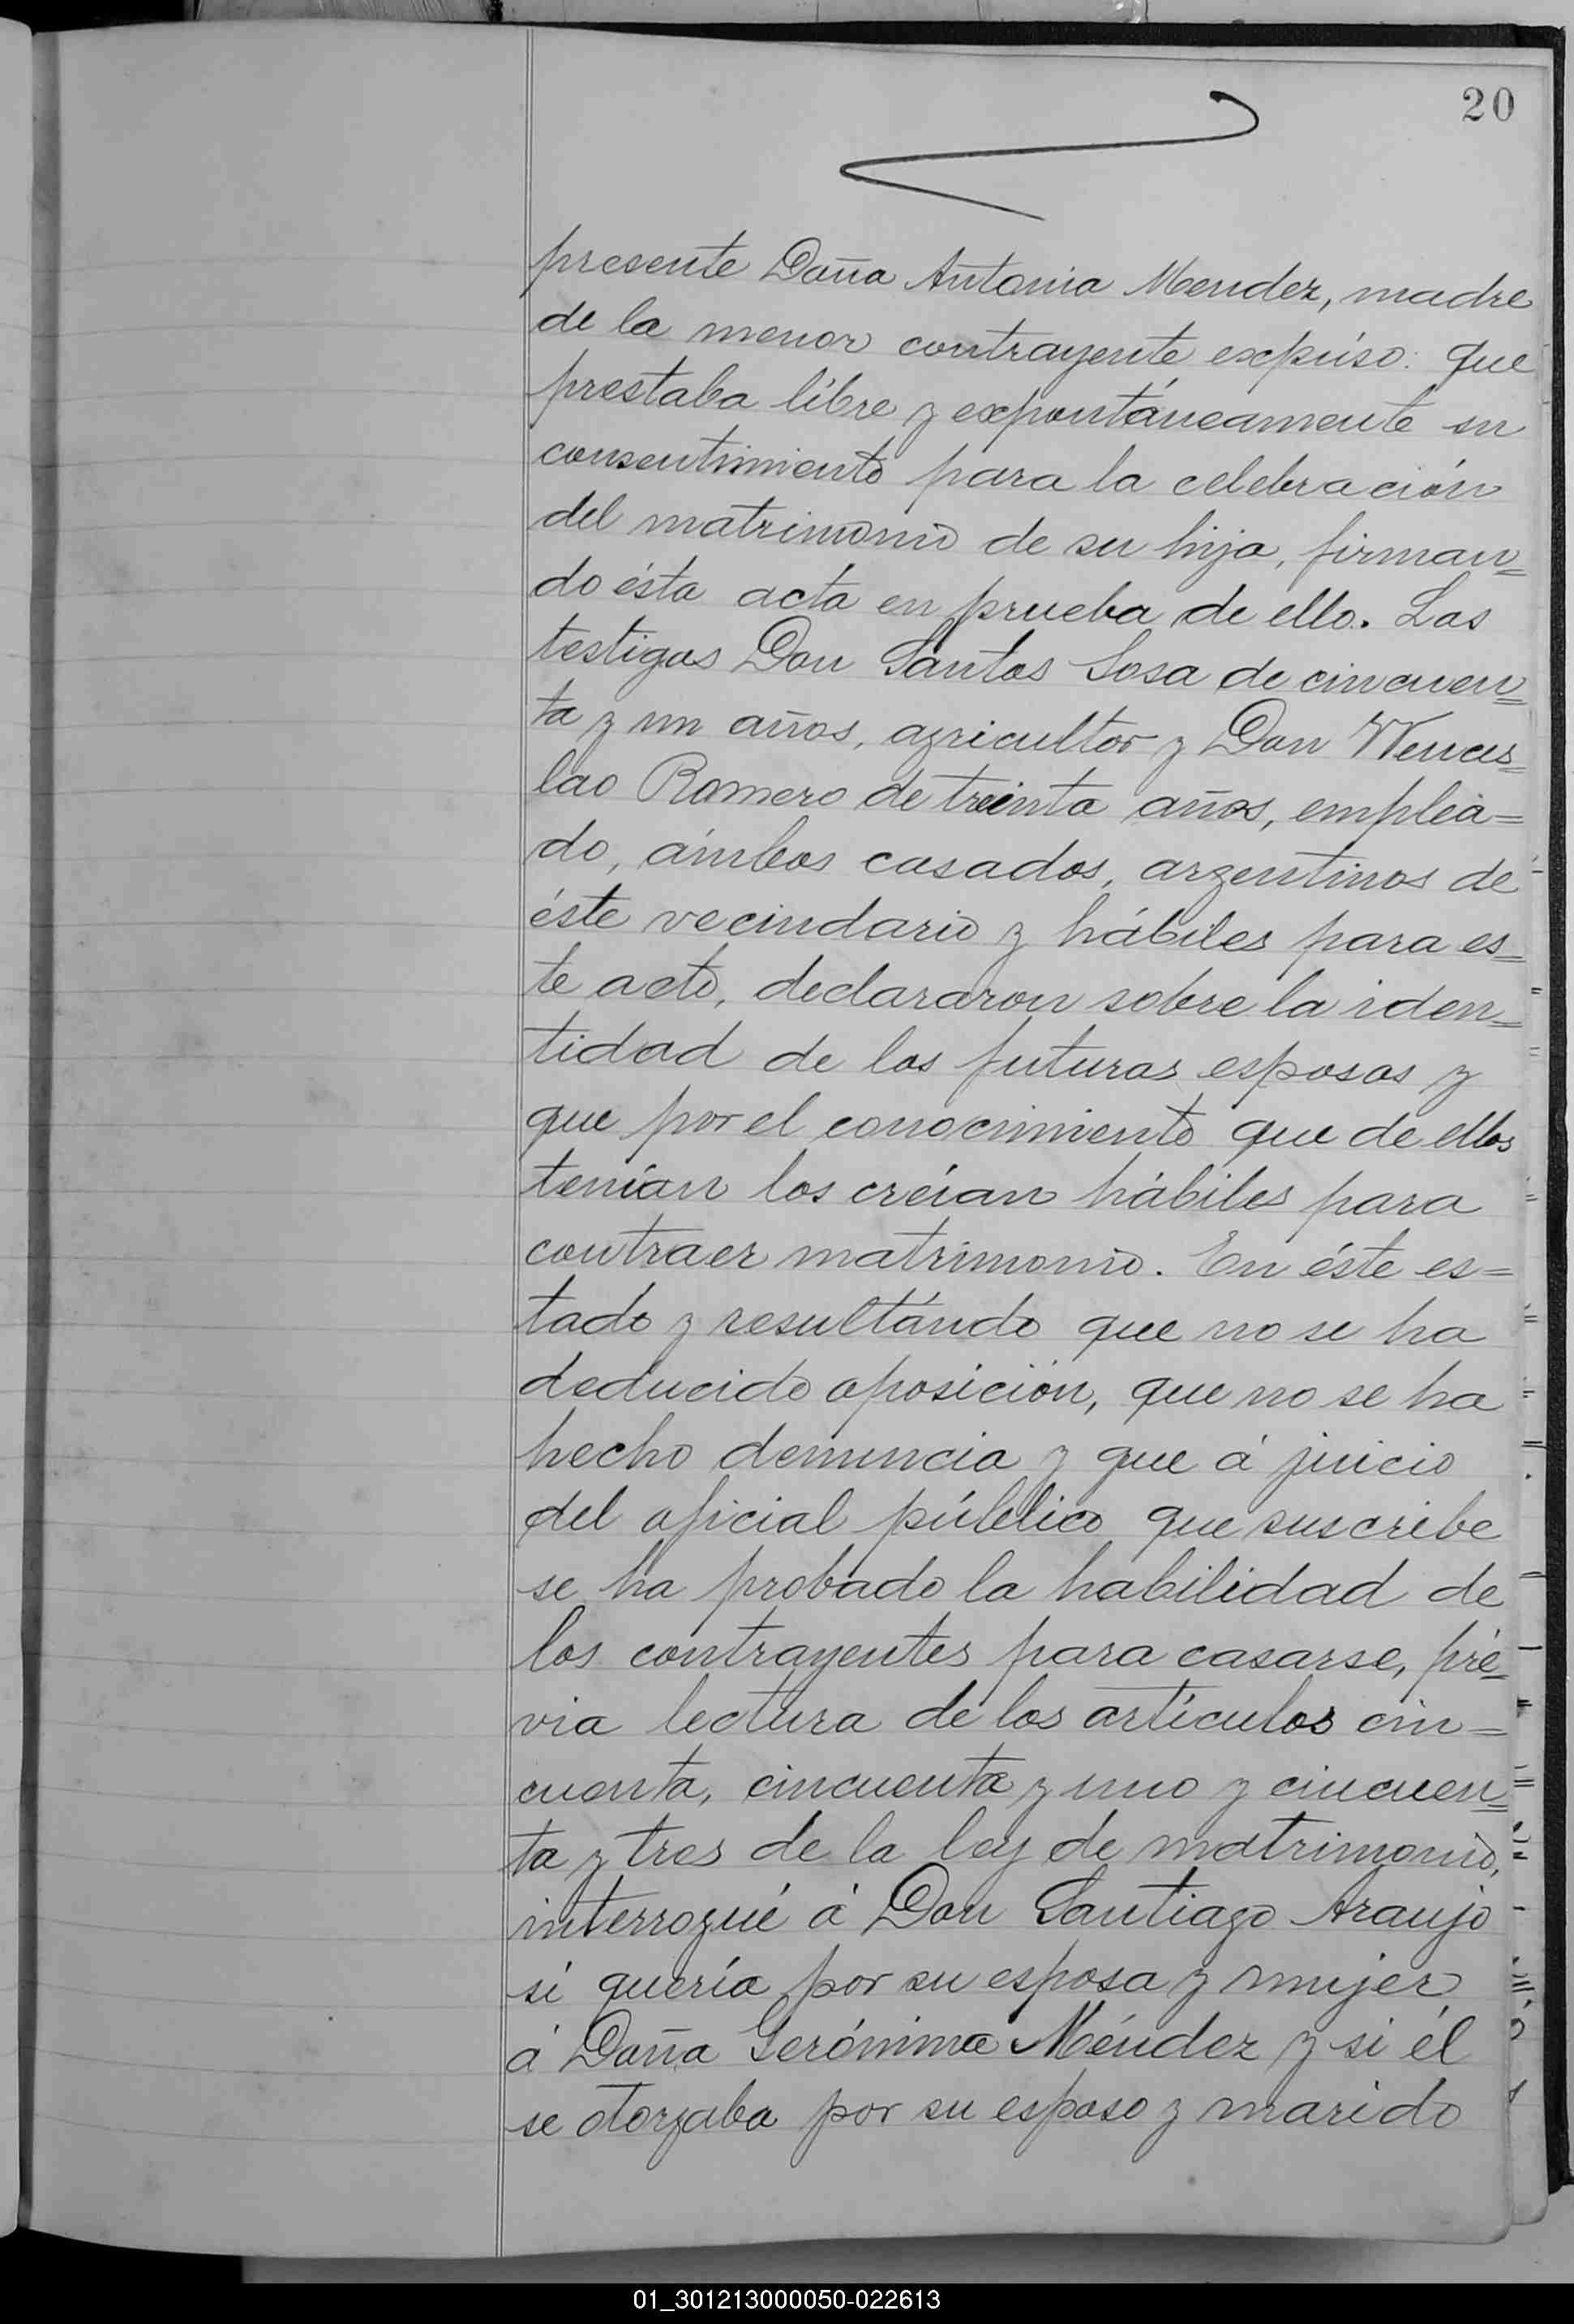 20
presente Doña Antonia Mendez, madre
de la menor contrayente expúso: que
prestaba líbre y expontáneamente su
consentimiento para la celebración
del matrimonio de su hija, firman=
do ésta acta en prueba de ello. Los
testigos Don Santos Sosa de cincuen=
ta y un años, agricultor y Don Wences=
lao Romero de treinta años, emplea=
do, ámbos casados, argentinos de
éste vecindario y hábiles para es=
te acto, declararon sobre la iden=
tidad de los futuros esposos y
que por el conocimiento que de ellos
tenían los creían hábiles para
contraer matrimonio. En éste es=
tado y resultándo que no se ha
deducido oposición, que no se ha
hecho denuncia y que á juicio
del oficial público que suscribe
se ha probado la habilidad de
los contrayentes para casarse, pré=
via lectura de los artículos cin=
cuenta, cincuenta y uno y cincuen=
ta y tres de la ley de matrimonio,
interrogué á Don Santiago Araujo
si quería por su esposa y mujer
á Doña Gerónima Méndez y si él
se otorgaba por su esposo y marido
01_301213000050-022613